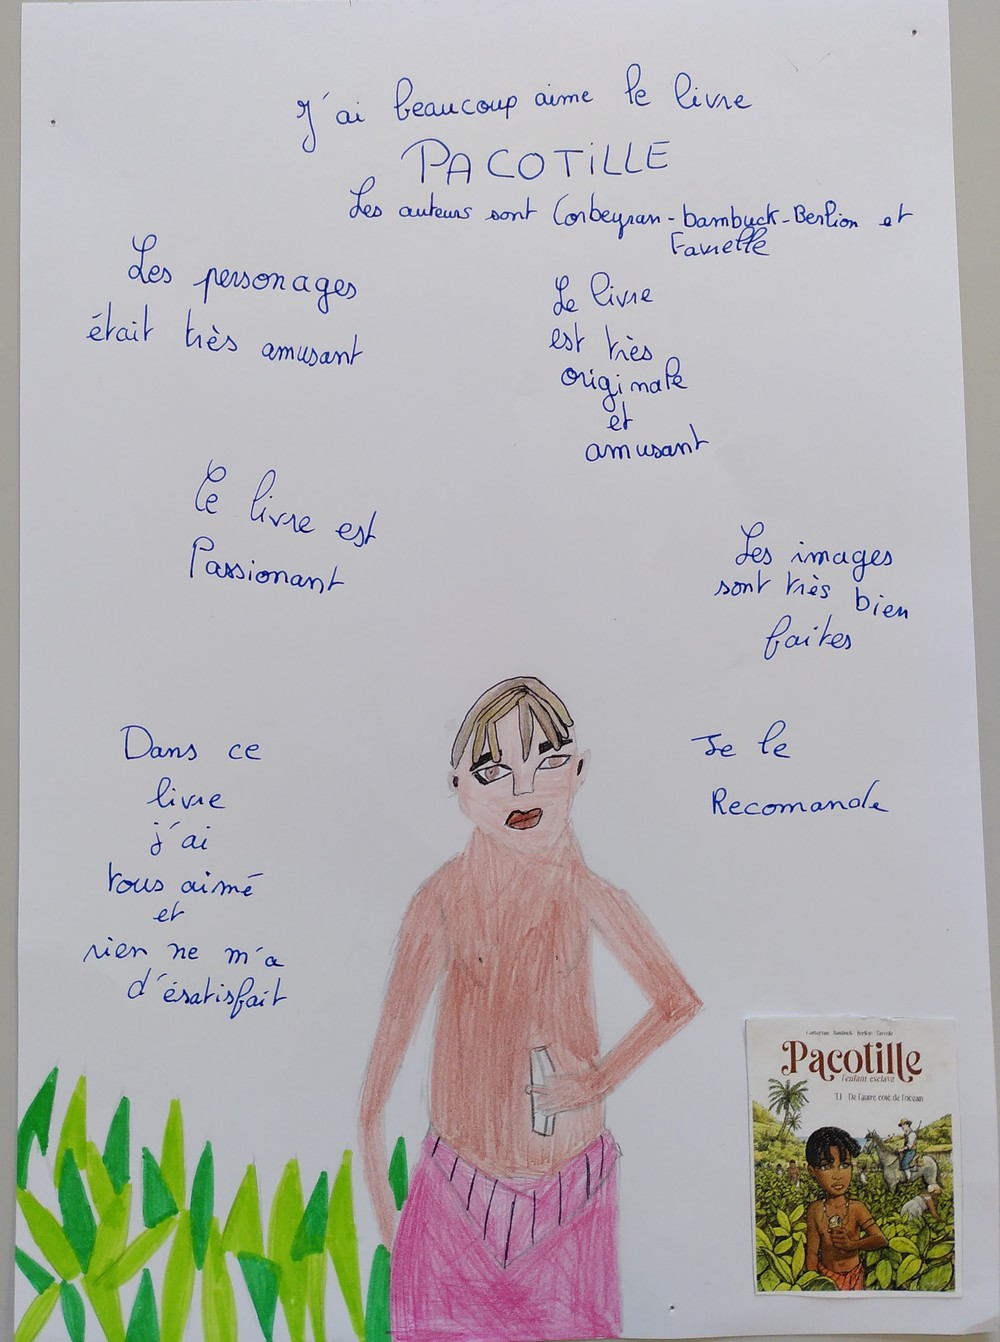 J'ai beaucoup aime le livre
PACOTiLLE
Les auteurs sont Corbeyran-bambuck-Berlion et
Favrelle
Les personages
était très amusant
Le livre
est très
originale
et
amusant
Ce livre est
Passionant
Les images
sont très bien
faites
Dans ce
livre
j'ai
tous aimé
et
rien ne m'a
d'ésatisfait
Je le
Recomande
Corbeyran Bambuck Berlion Favrelle
Pacotille
l'enfant esclave
T.1 De l'autre côté de l'océan